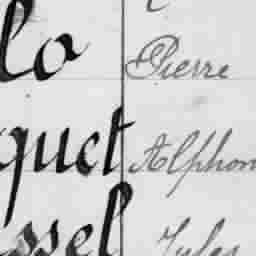 lo Pierre
quet Alphon
ssel Jules